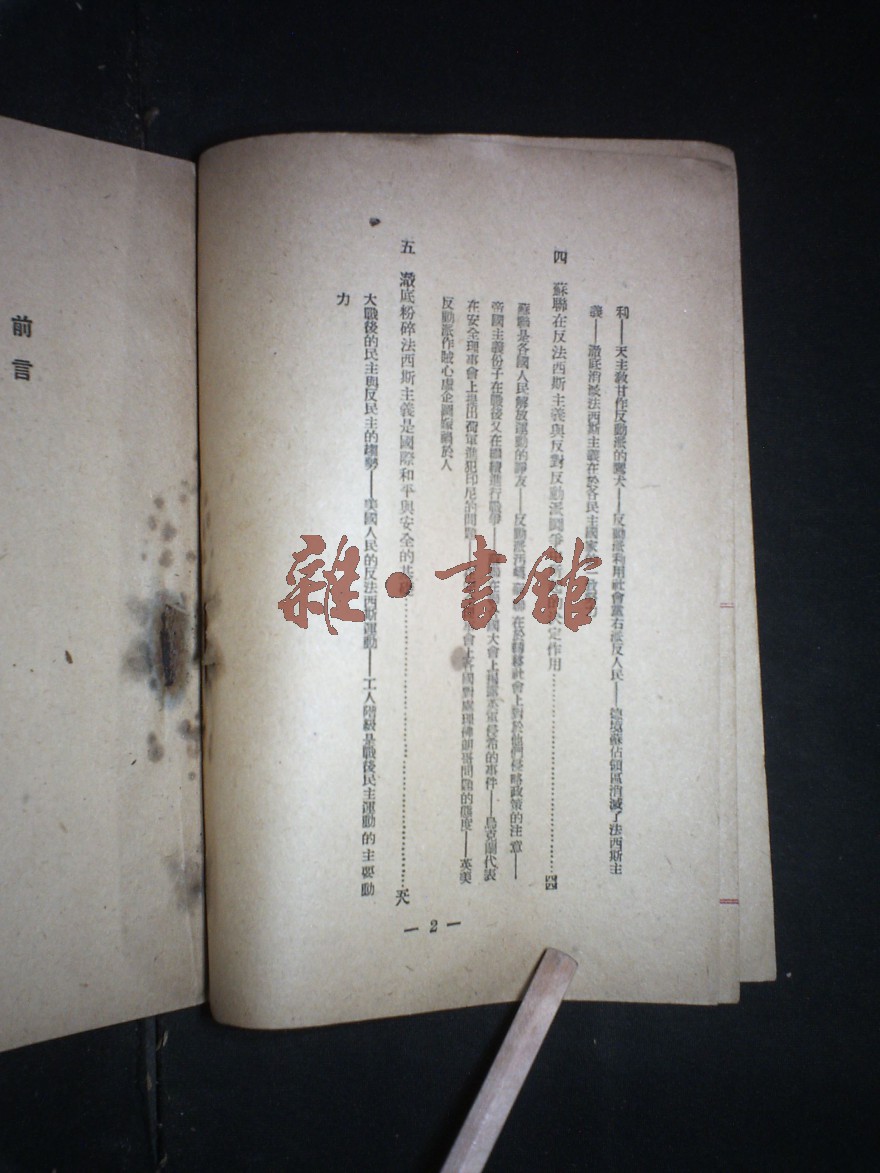 利——天主敎甘作反動派的鷹犬——反動派利用社會黨右派反人民——德境蘇佔領區消滅了法西斯主
義——澈底消滅法西斯主義在於各民主國家
四 蘇聯在反法西斯主義與反對反動派鬪爭 定作用 四四
蘇聯是各國人民解放運動的諍友——反動派 在於轉移社會上對於他們侵略政策的注意——
帝國主義份子在戰後又在繼續進行戰爭—— 國大會上揭露英軍侵希的事件——烏克蘭代表
在安全理事會上提出荷軍進犯印尼的問題 會上各國對處理佛朗哥問題的態度——英美
反動派作賊心虛企圖嫁禍於人
五 澈底粉碎法西斯主義是國際和平與安全的
大戰後的民主與反民主的趨勢——美國人民的反法西斯運動——工人階級是戰後民主運動的主要動
力
— 2 —
前言
雜·書館